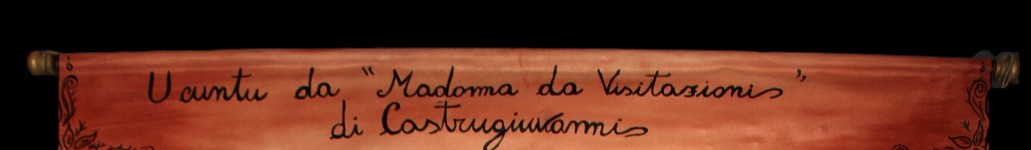 U cuntu da "Madonna da Visitazioni"
di Castrugiuvanni